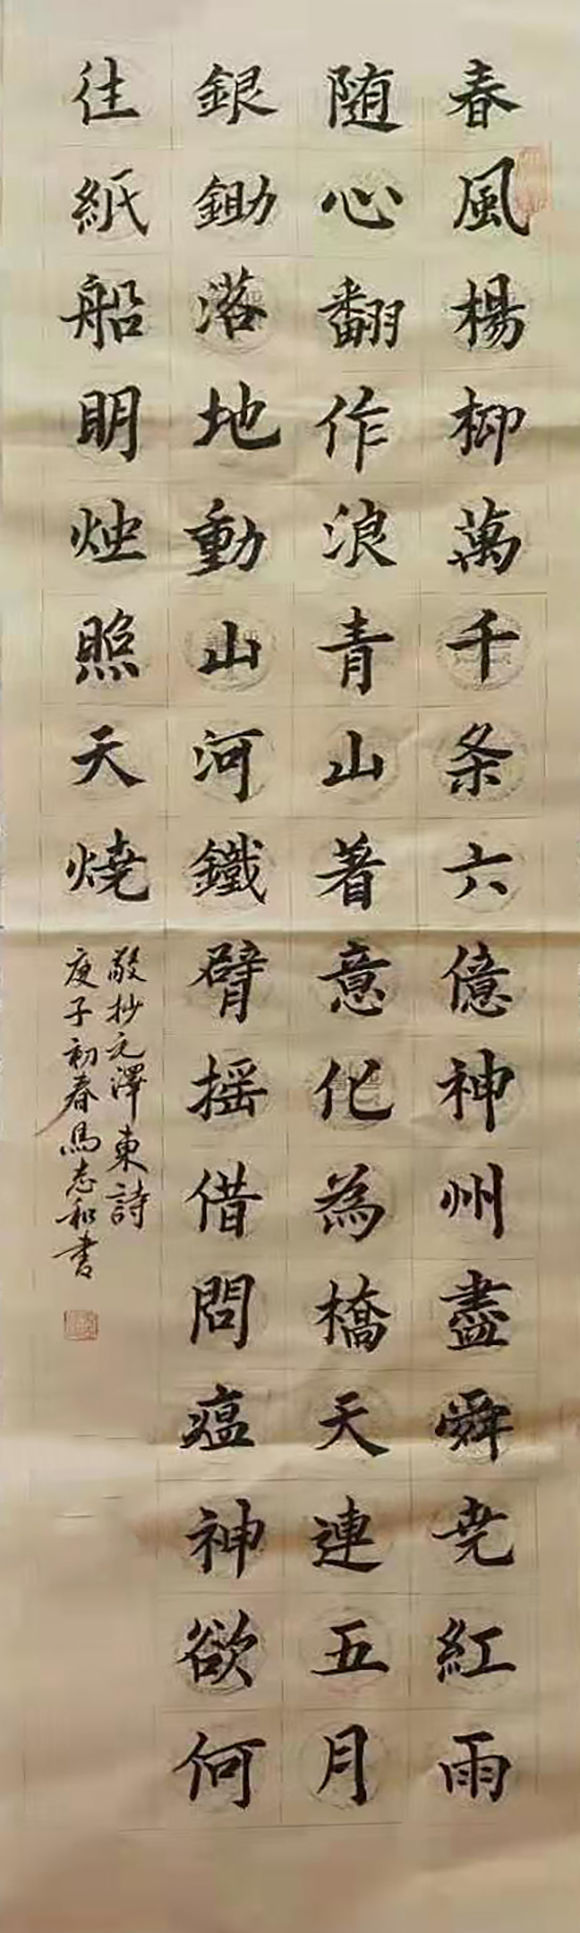 春風楊柳萬千条六億神州盡舜尭紅雨
随心翻作浪青山著意化為橋天連五月
銀鋤落地動山河鐵臂揺借問瘟神欲何
往紙船明烛照天燒
敬抄毛澤東詩
庚子初春馬志和書